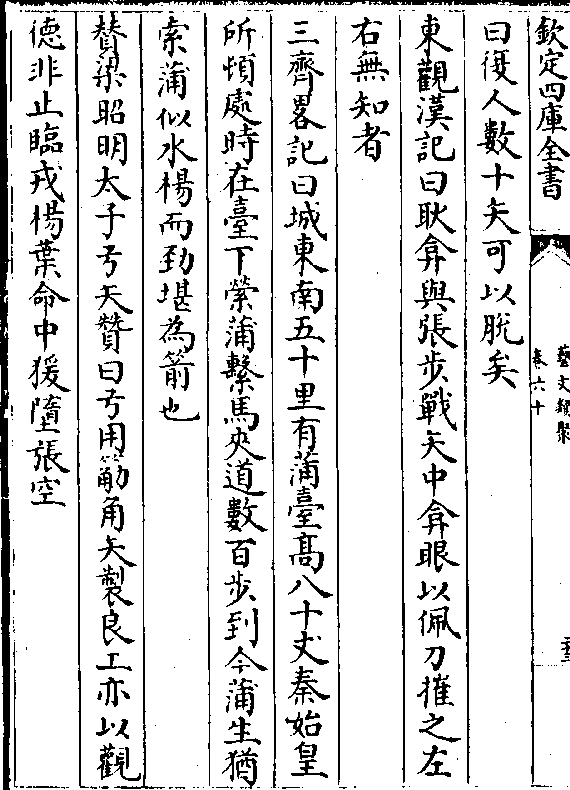 欽定四庫全書
藝文類聚
卷六十
曰復人數十矢可以脫矣
東觀漢記曰耿弇與張步戰矢中弇眼以佩刀摧之左
右無知者
三齊畧記曰城東南五十里有蒲臺髙八十丈秦始皇
所頓處時在臺下縈蒲繫馬夾道數百步到今蒲生猶
索蒲似水楊而勁堪為箭也
賛梁昭明太子弓矢贊曰弓用筋角矢製良工亦以觀
德非止臨戎楊葉命中猨墮張空